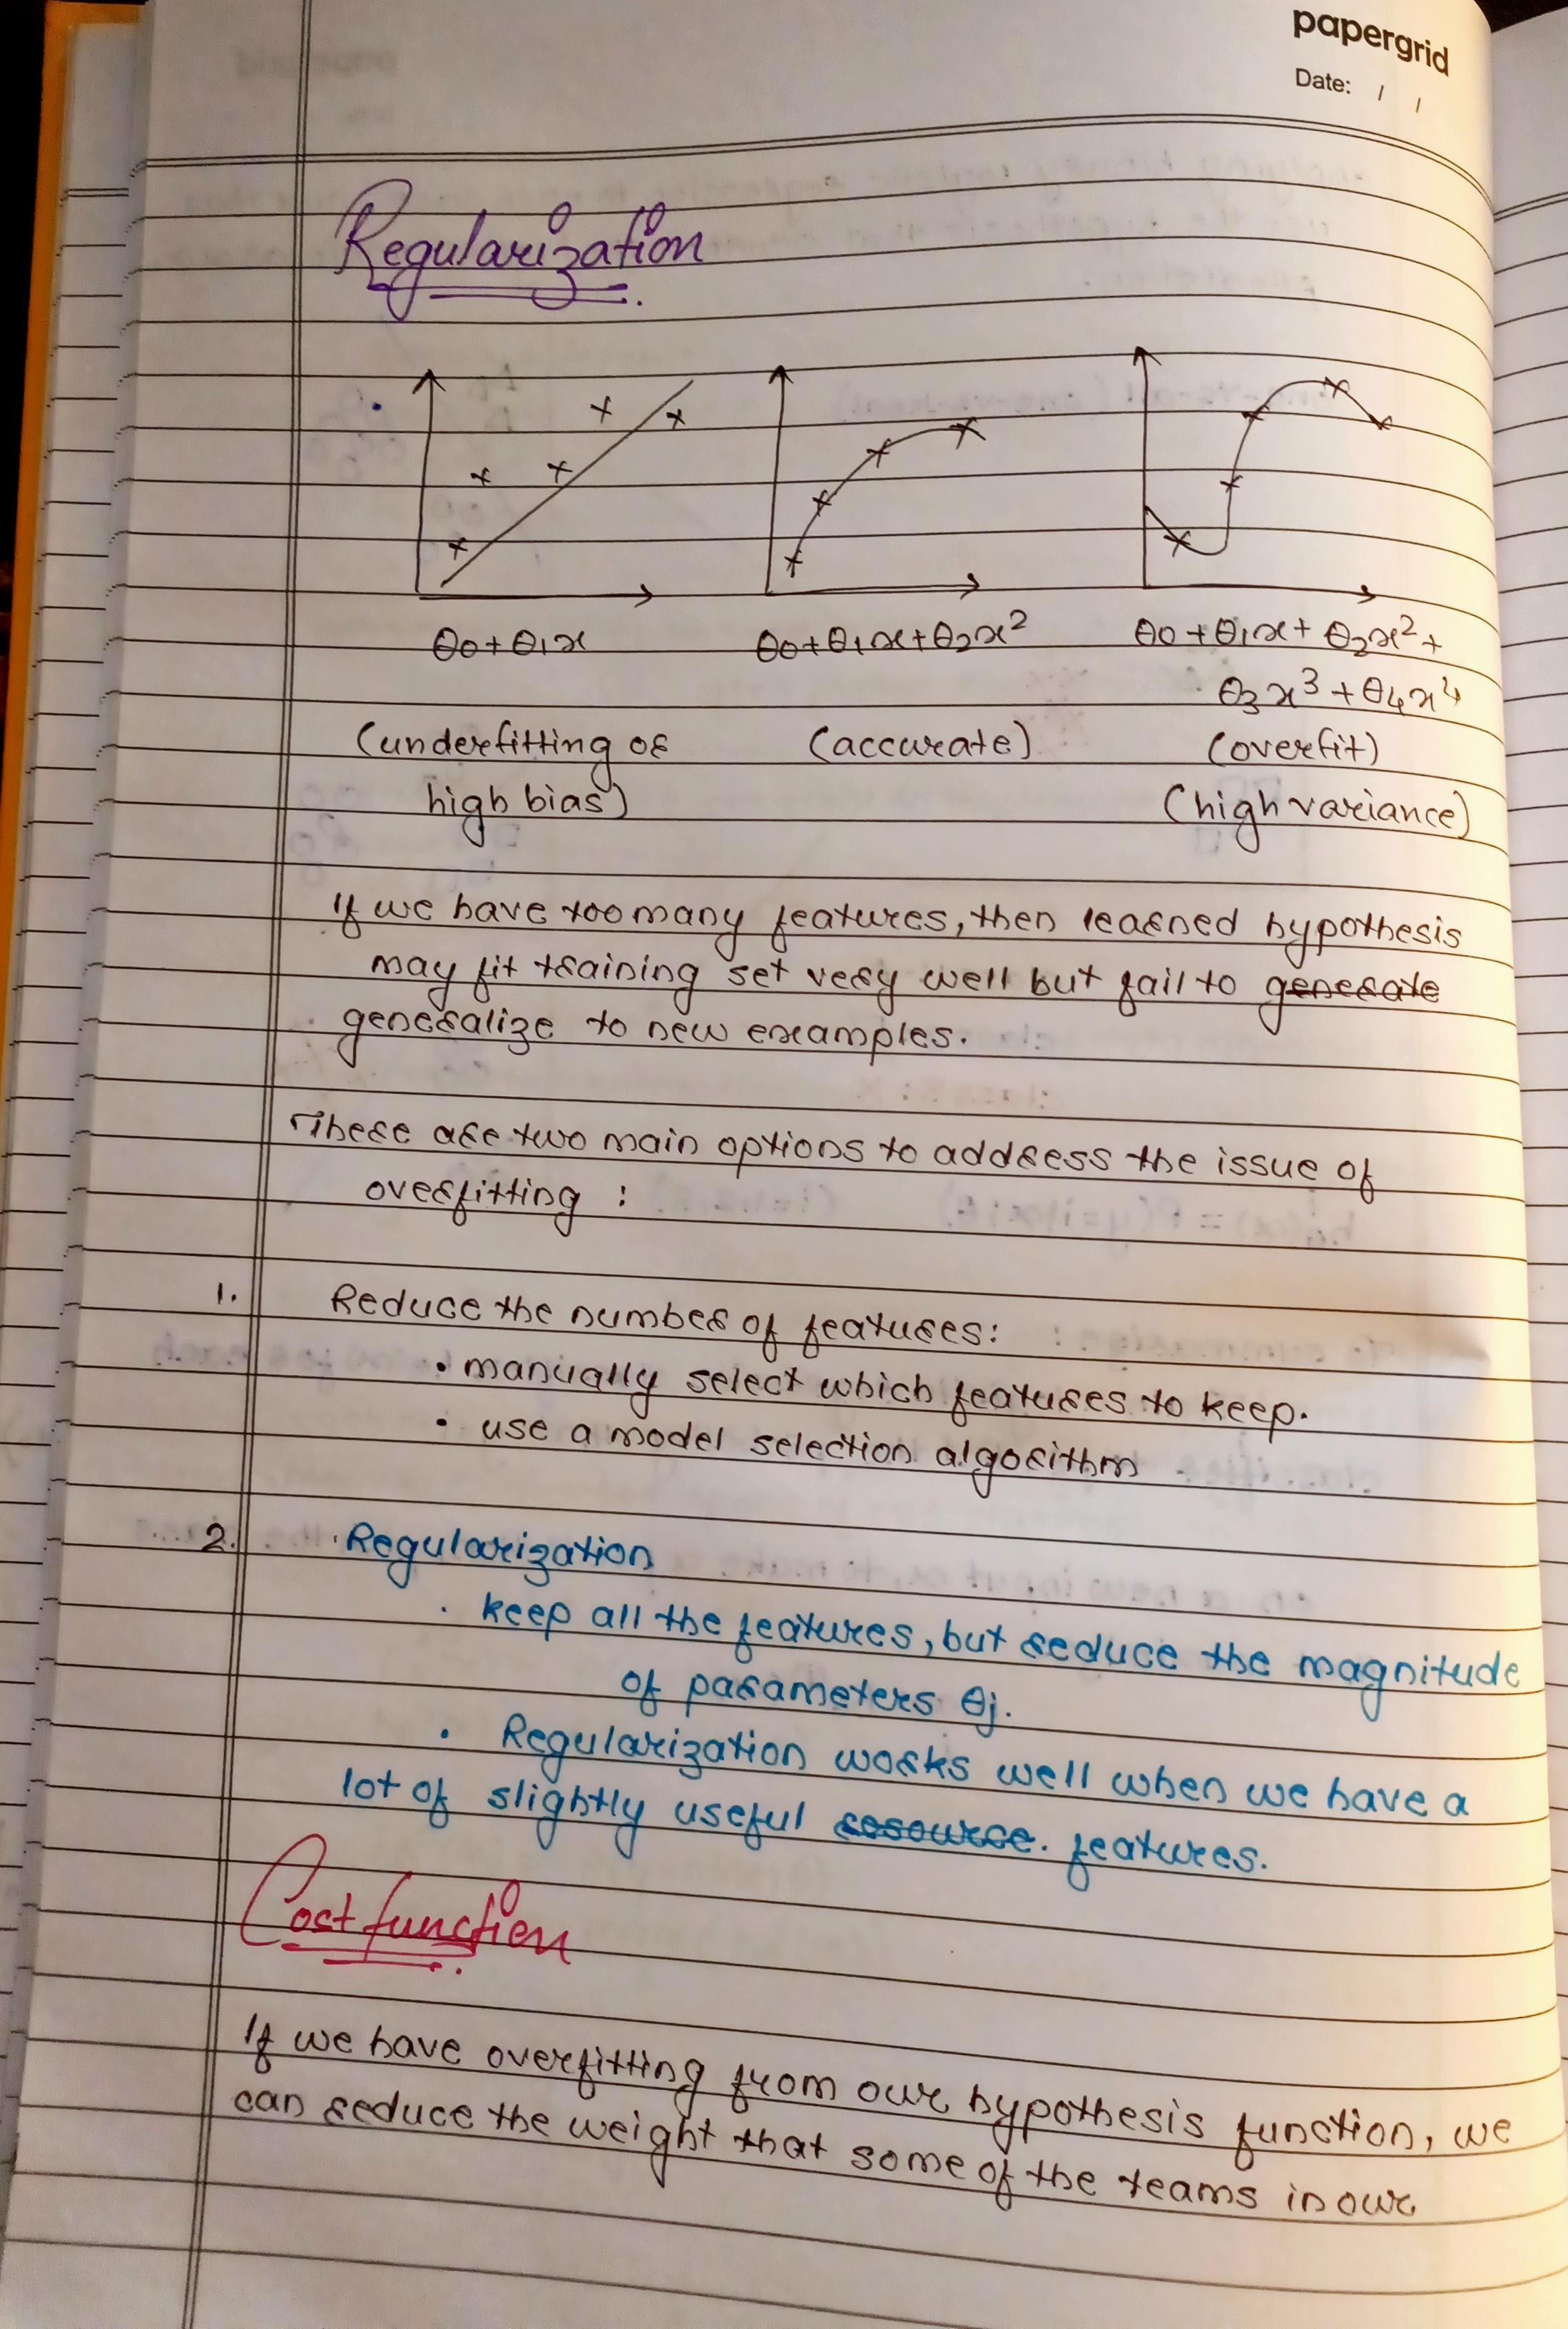 papergrid
Date: / /
Regularization
θ0+θ1x θ0+θ1x+θ2x² θ0+θ1x+θ2x²+
θ3x³+θ4x⁴
(underfitting or (accurate) (overfit)
high bias) (high variance)
If we have too many features, then learned hypothesis
may fit training set very well but fail to generate
generalize to new examples.
There are two main options to address the issue of
overfitting :
1. Reduce the number of features:
• manually select which features to keep.
• use a model selection algorithm
2. Regularization
• keep all the features, but reduce the magnitude
of parameters θj.
• Regularization works well when we have a
lot of slightly useful resource. features.
Cost function
If we have overfitting from our hypothesis function, we
can reduce the weight that some of the teams in our